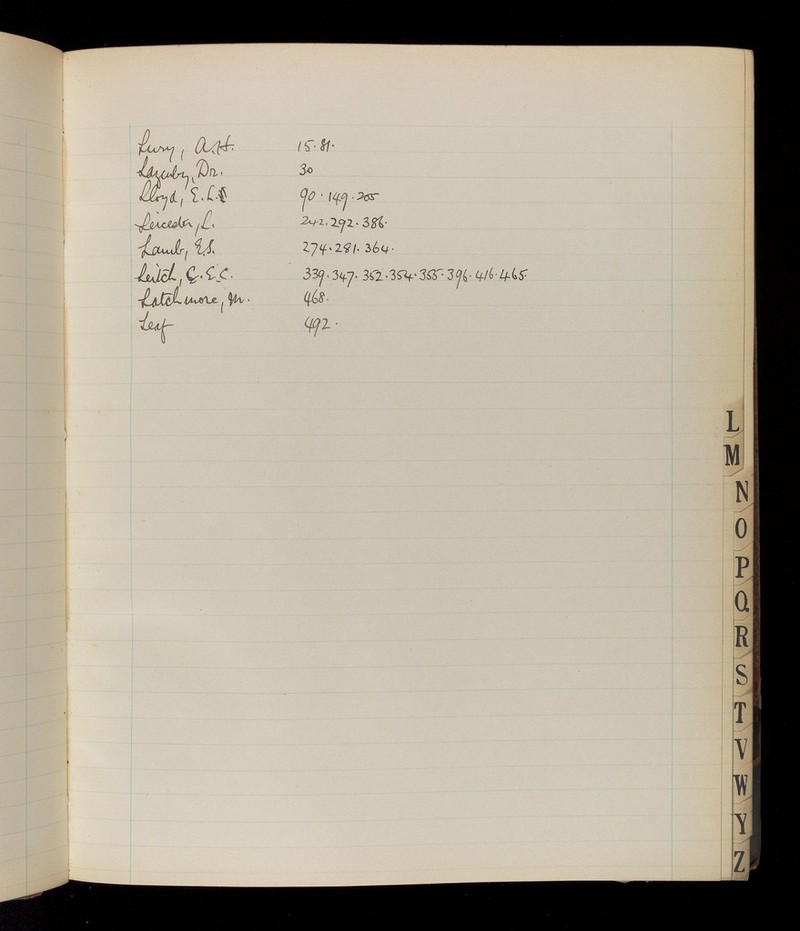 Lury, A.H. 15. 81.
Lazenby, Dr. 30
Lloyd, E.L. 90. 149. 205
Leicester, L. 242. 292. 386.
Lamb, E.S. 274. 281. 364.
Leitch, C.E.C. 339. 347. 352. 354. 355. 396. 416. 465.
Latchmore, M. 468.
Leaf 492.
L
M
N
O
P
Q
R
S
T
V
W
Y
Z